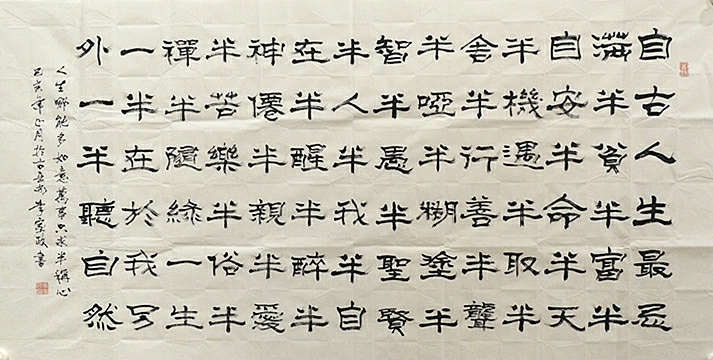 自古人生最忌
滿半貧半富半
自安半命半天
半機遇半取半
舍半行善半聾
半啞半糊塗半
智半愚半聖賢
半人半我半自
在半醒半醉半
神僊半親半愛
半苦樂半俗半
禪半隨緣一生
一半在於我另
外一半聽自然
人生哪能多如意萬事只求半稱心
己亥年正月於古長安李政書